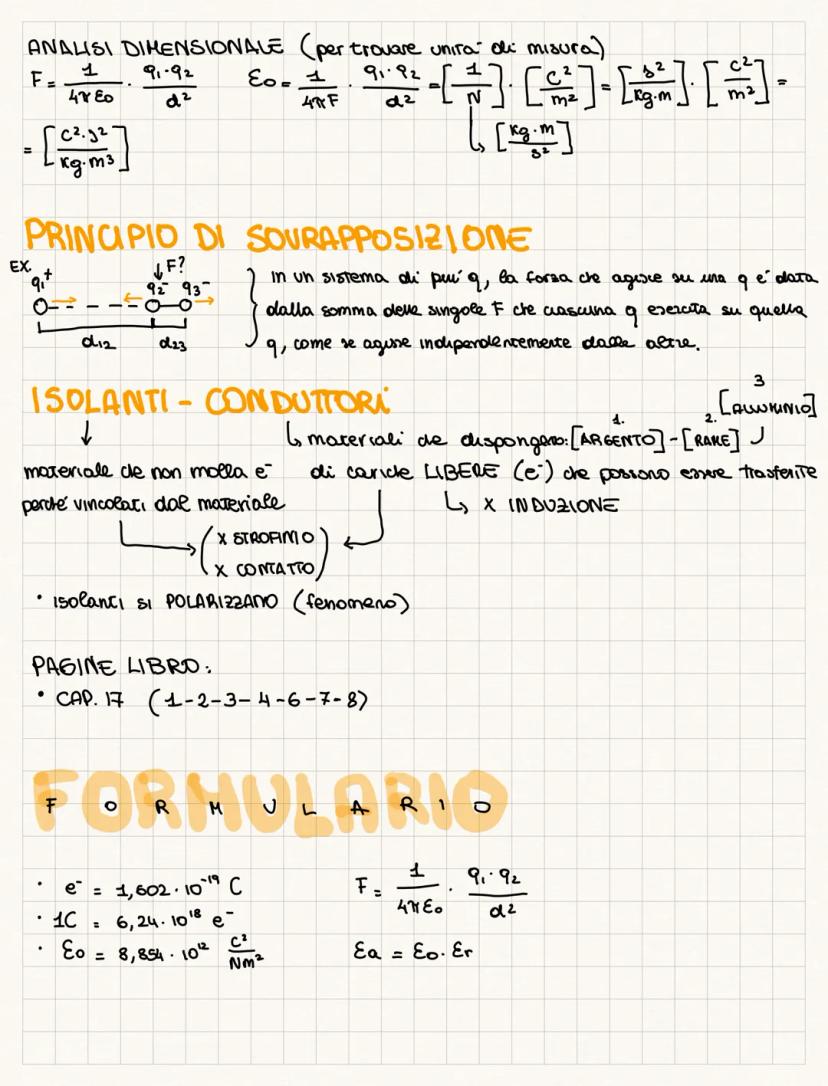 ANALISI DIMENSIONALE (per trovare unità di misura)
F = 1/4πε0 · q1·q2/d² ε0 = 1/4πF · q1·q2/d² = [1/N] · [C²/m²] = [s²/kg·m] · [C²/m²] =
↳ [kg·m/s²]
= [C²·s²/kg·m³]
PRINCIPIO DI SOVRAPPOSIZIONE
EX. q1+ ↓F? q2- q3-
d12 d23
} in un sistema di più q, la forza che agisce su una q è data
dalla somma delle singole F che ciascuna q esercita su quella
q, come se agisse indipendentemente dalle altre.
ISOLANTI - CONDUTTORI
↓ materiale che non molla e-
perché vincolati dal materiale
↳ materiali che dispongono: 1. [ARGENTO] - 2. [RAME] 3 [ALLUMINIO]
di cariche LIBERE (e-) che possono essere trasferite
↳ X INDUZIONE
(X STROFINIO
X CONTATTO)
• isolanti si POLARIZZANO (fenomeno)
PAGINE LIBRO:
• CAP. 17 (1-2-3-4-6-7-8)
FORMULARIO
F O R M U L A R I O
· e- = 1,602·10⁻¹⁹ C
· 1C = 6,24·10¹⁸ e-
· ε0 = 8,854·10¹² C²/Nm²
F = 1/4πε0 · q1·q2/d²
εa = ε0·εr